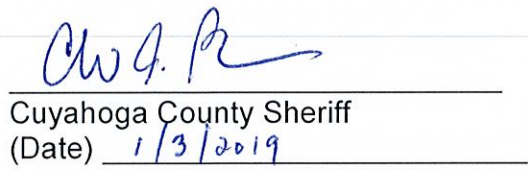 Cuyahoga County Sheriff
(Date) 1/3/2019